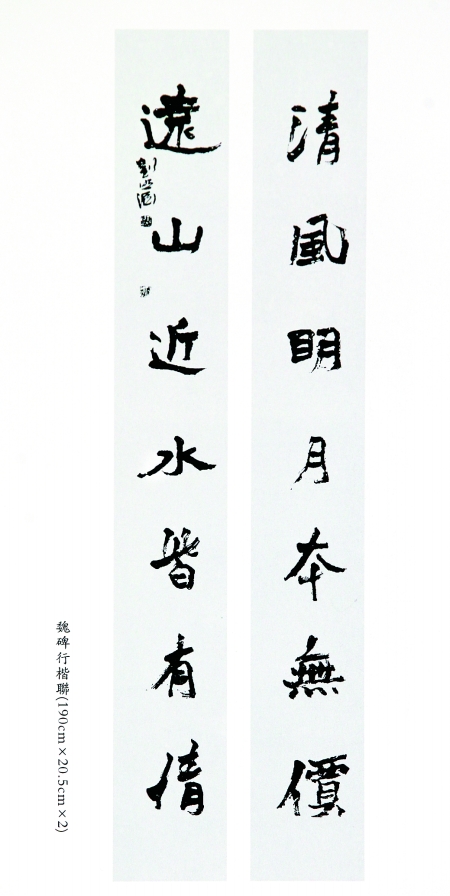 清風明月本無價
遠山近水皆有情
魏碑行楷聯(190cm×20.5cm×2)